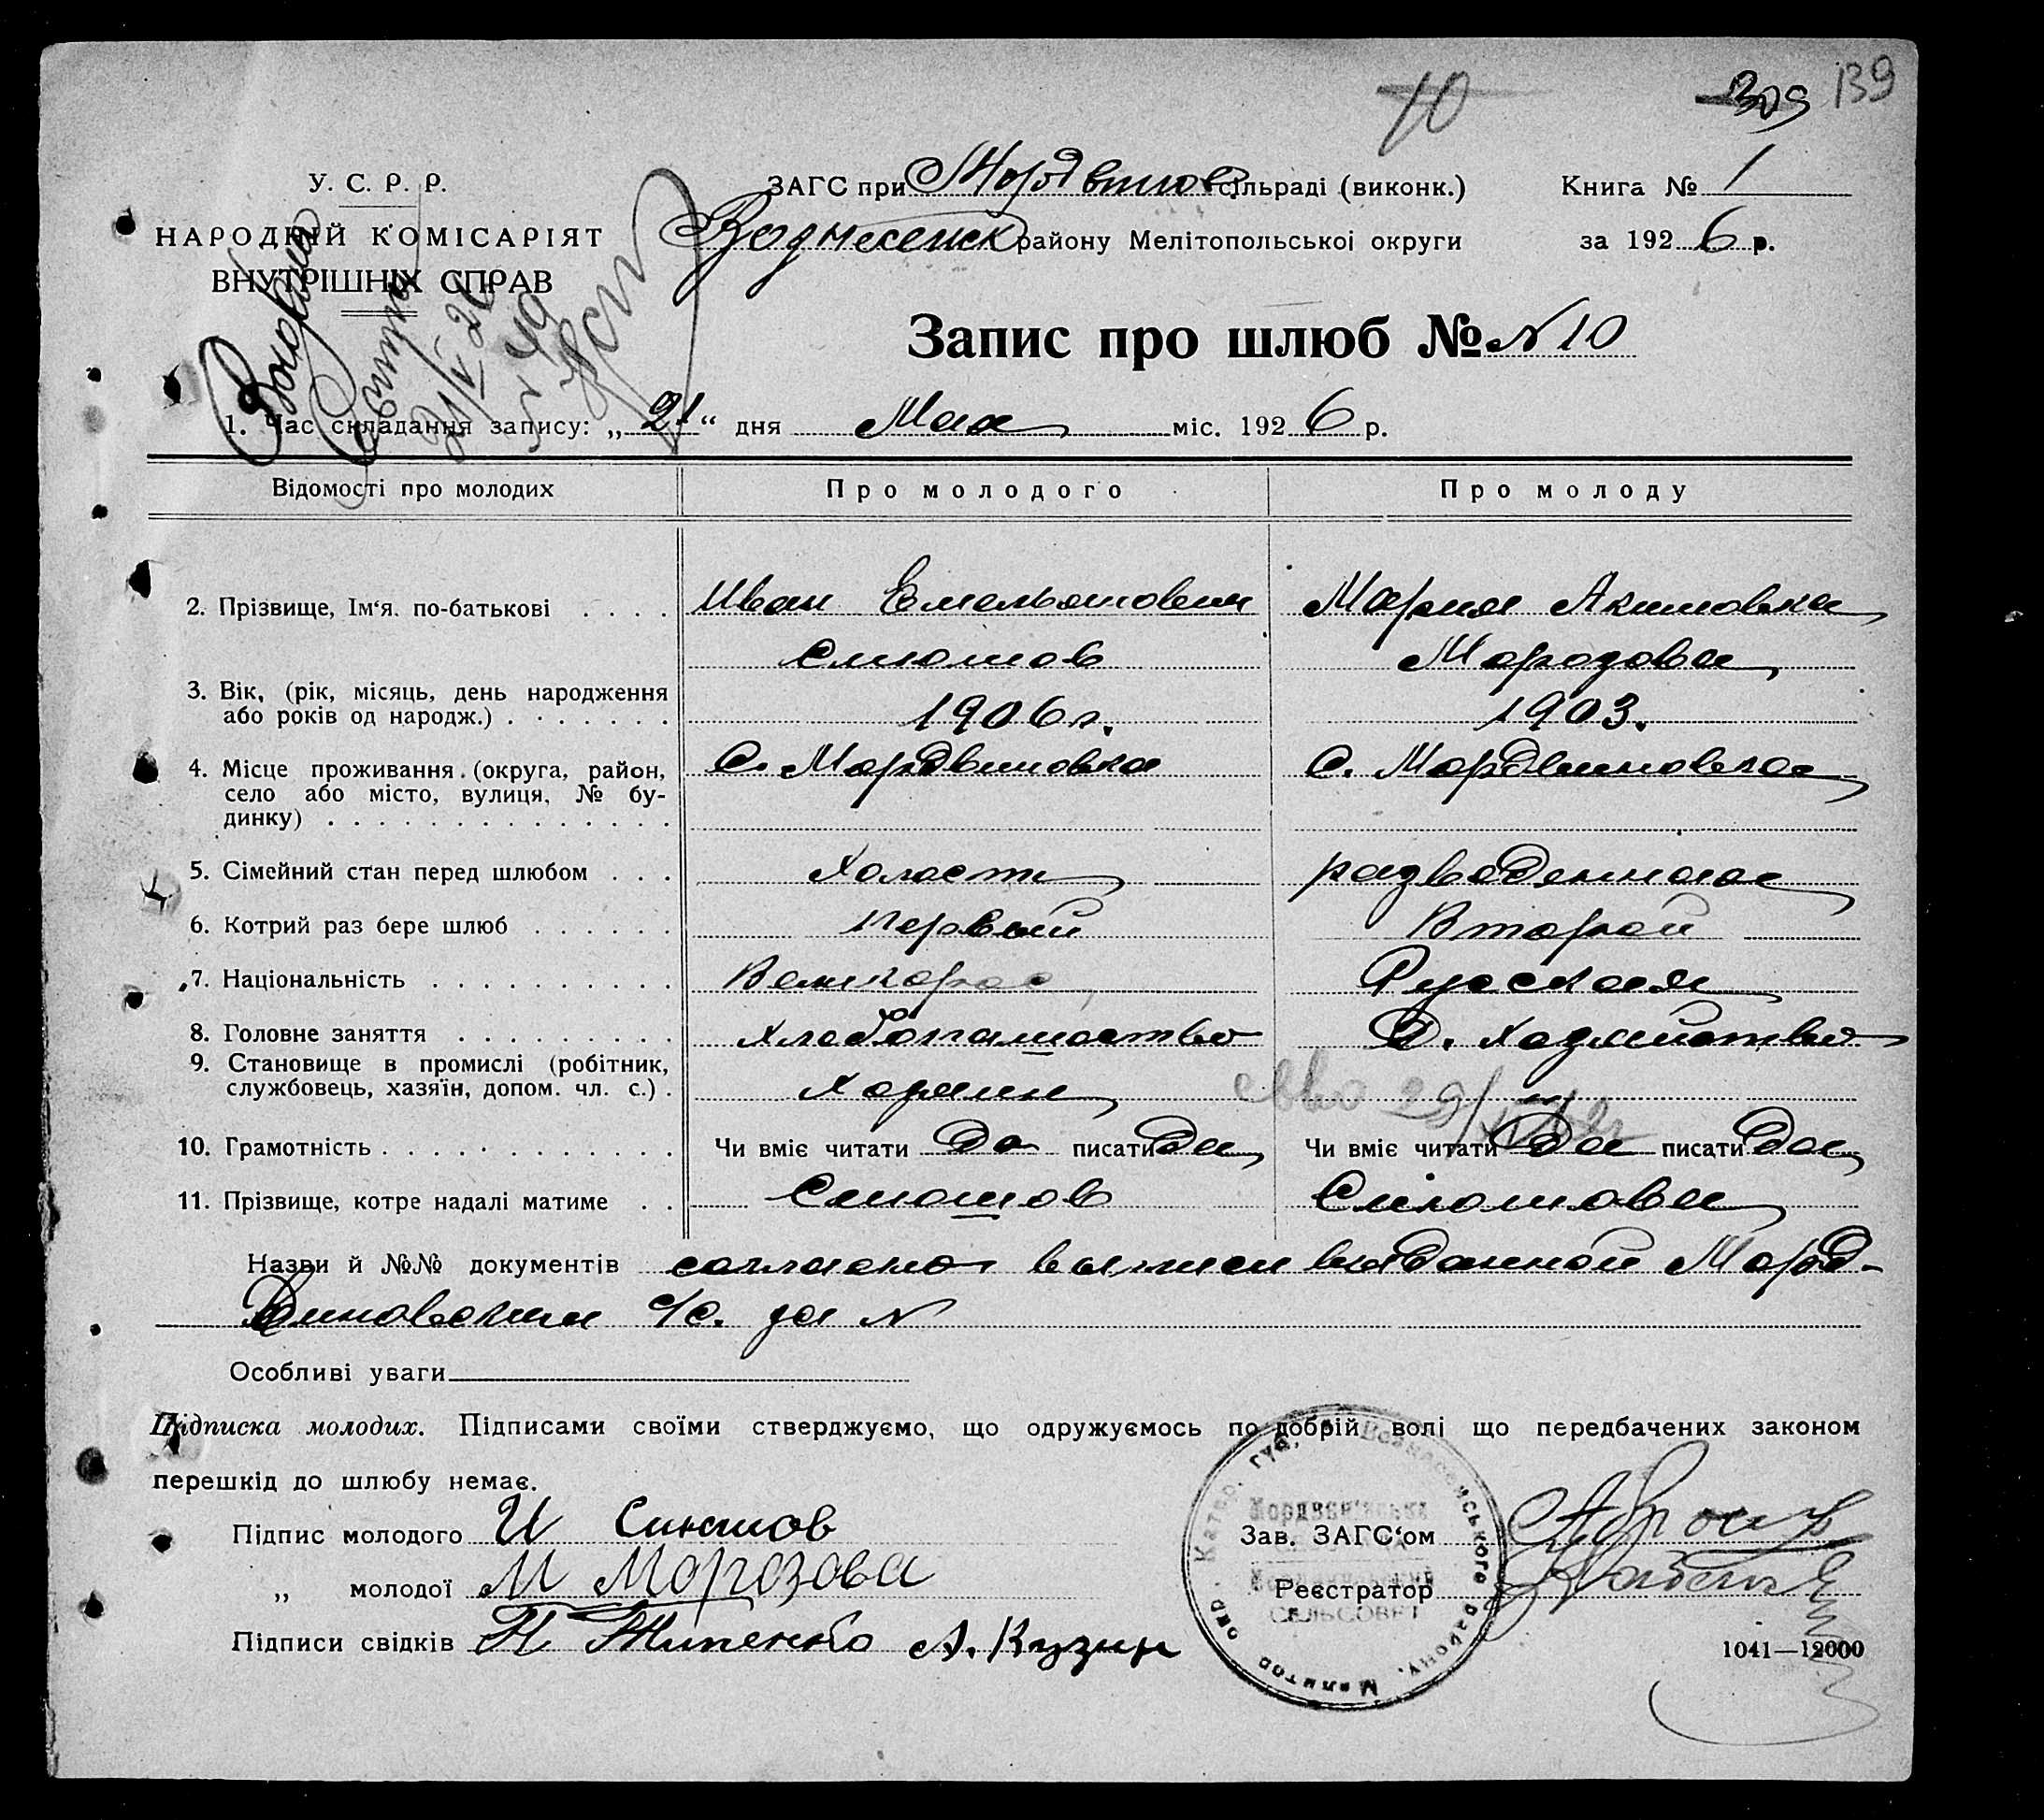 10
309 139
У. С. Р. Р.
НАРОДНІЙ КОМІСАРІЯТ
ВНУТРІШНІХ СПРАВ
ЗАГС при Мордвинов. сільраді (виконк.) Книга № 1
Вознесенск району Мелітопольської округи за 1926 р.
Запис про шлюб № N 10
1. Час складання запису: „21“ дня Мая міс. 1926 р.
Відомості про молодих Про молодого Про молоду
2. Прізвище, Ім'я. по-батькові . . . . Иван Емельянович Мария Акимовна
Морозова
3. Вік, (рік, місяць, день народження
або років од народж.) . . . . . . . 1906 г. 1903.
4. Місце проживання. (округа, район, С. Мордвиновка С. Мордвиновка
село або місто, вулиця, № бу-
динку) . . . . . . . . . . . . . .
5. Сімейний стан перед шлюбом . . . Холост разведенная
6. Котрий раз бере шлюб . . . . . . первый Второй
7. Національність . . . . . . . . . . Великорос Русская
8. Головне заняття . . . . . . . . . Хлебопашество Д. хозяйство
9. Становище в промислі (робітник,
службовець, хазяїн, допом. чл. с.) . Хозяин
10. Грамотність . . . . . . . . . . . . Чи вміє читати Да писати Да Чи вміє читати Да писати Да
11. Прізвище, котре надалі матиме . . Синюшов Синюшова
Назви й №№ документів согласно выписи выданной Морд-
виновским с/с. за N
Особливі уваги
Підписка молодих. Підписами своїми стверджуємо, що одружуємось по добрій волі що передбачених законом
перешкід до шлюбу немає.
Підпис молодого И Синюшов Зав. ЗАГС'ом
„ молодої М Морозова Реєстратор
Підписи свідків А. Кузин
СЕЛЬСОВЕТ
1041—12000